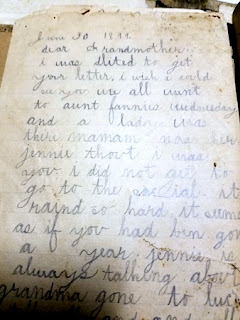 June 30 1899
dear Grandmother
i was glited to get
your letter, i wish i could
see you we all wunt
to aunt fannies wednesday
and a ladney was
there mamam nas her
jennie thout i was
you i did not get to
go to the social it
raind so hard, it seems
as if you had ben gon
a year jennie is
always talking about
grandma gone to